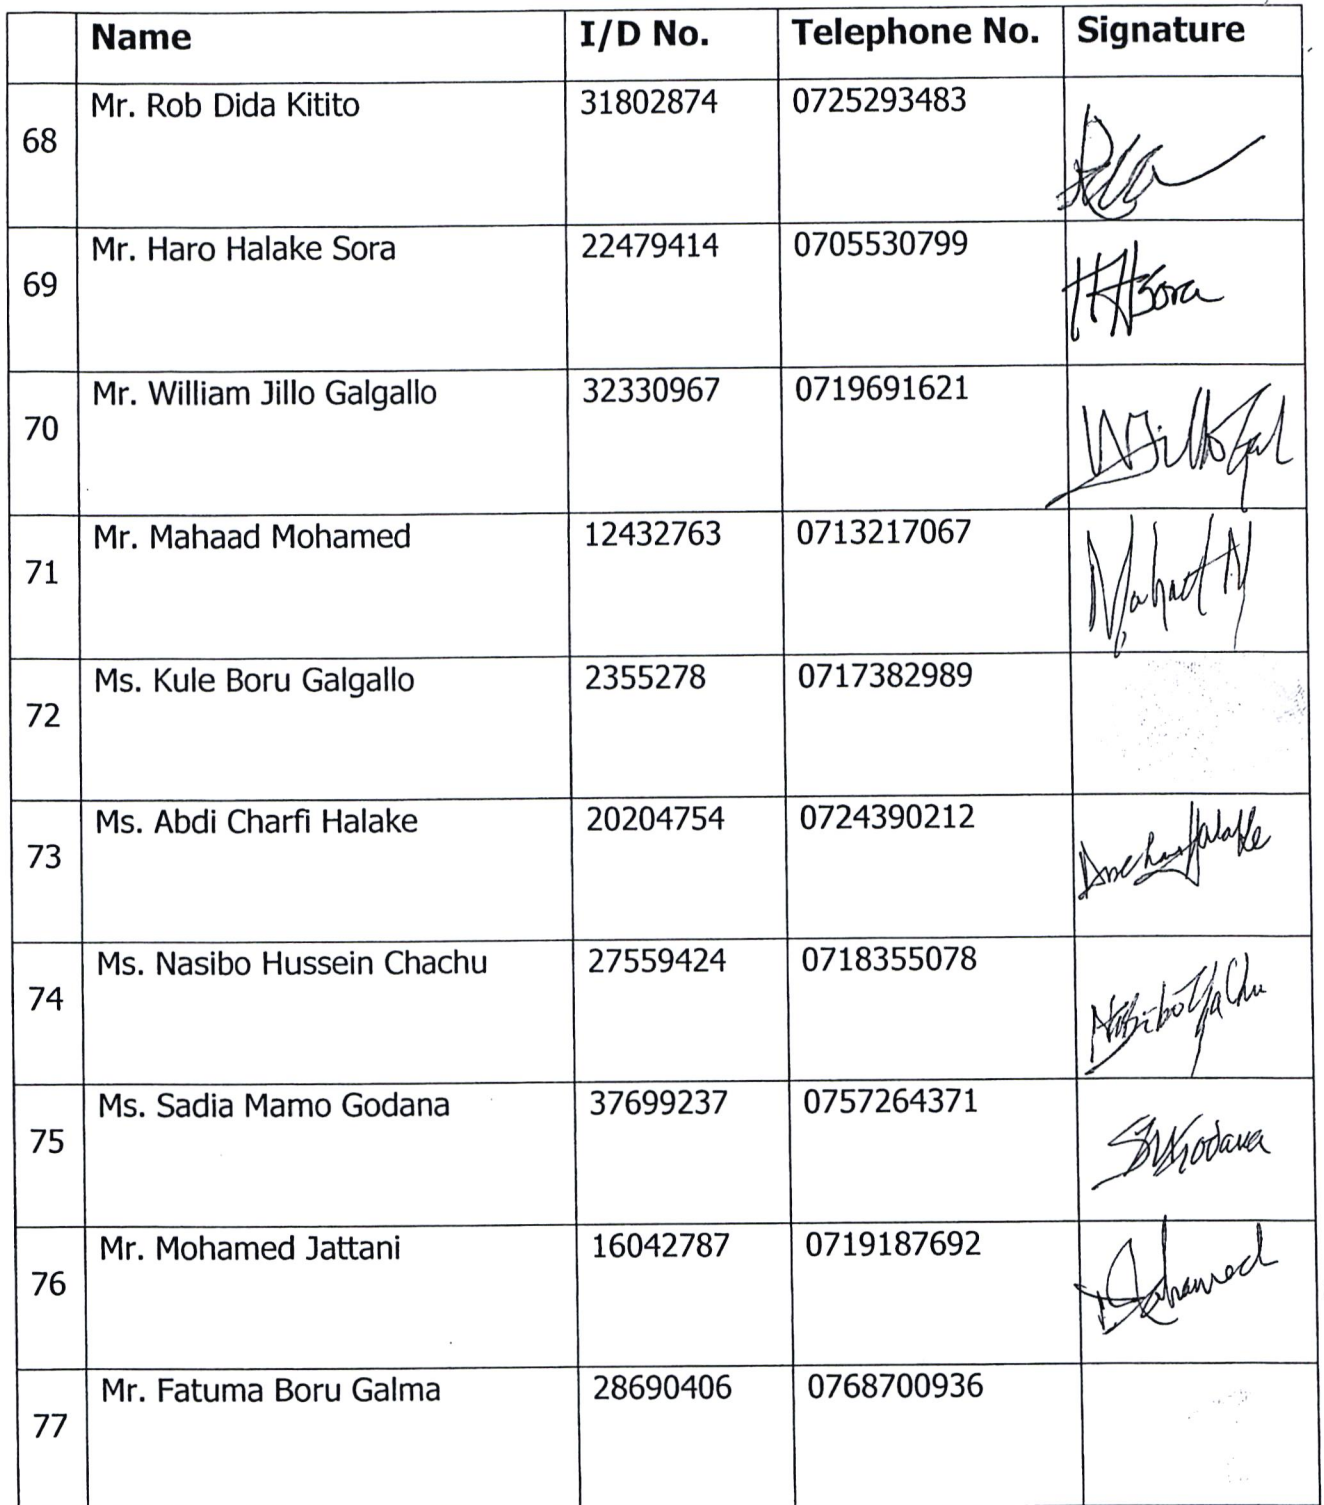 Name I/D No. Telephone No. Signature
68 Mr. Rob Dida Kitito 31802874 0725293483
69 Mr. Haro Halake Sora 22479414 0705530799 HHSora
70 Mr. William Jillo Galgallo 32330967 0719691621 WJilloGal
71 Mr. Mahaad Mohamed 12432763 0713217067
72 Ms. Kule Boru Galgallo 2355278 0717382989
73 Ms. Abdi Charfi Halake 20204754 0724390212
74 Ms. Nasibo Hussein Chachu 27559424 0718355078
75 Ms. Sadia Mamo Godana 37699237 0757264371 SMGodana
76 Mr. Mohamed Jattani 16042787 0719187692 Mohamed
77 Mr. Fatuma Boru Galma 28690406 0768700936